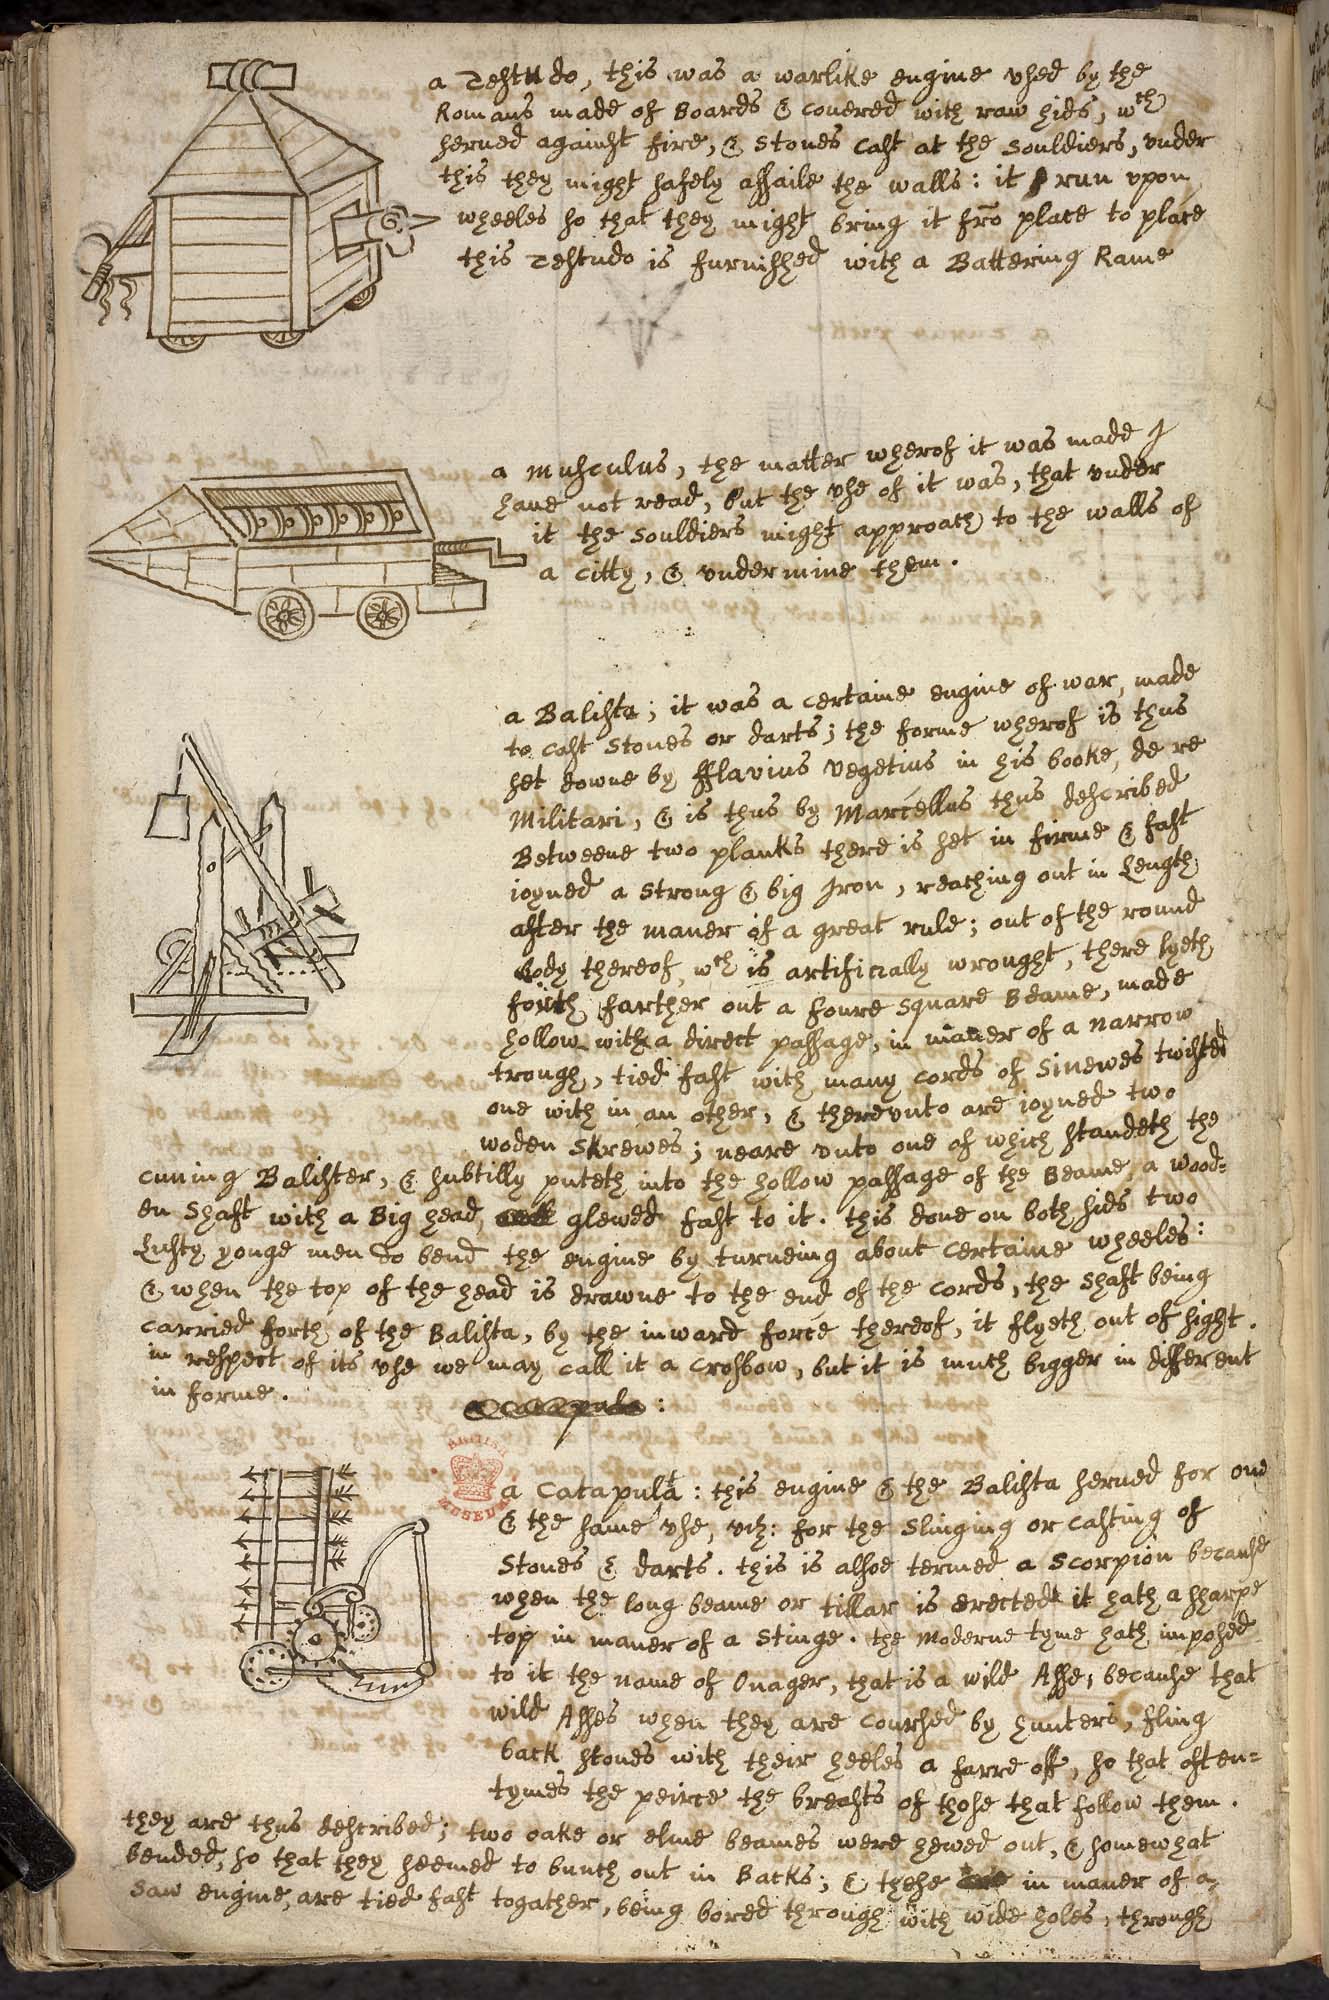 a Testudo, this was a warlike engine vsed by the
Romans made of Boards & couered with raw hids, wch
serued against fire, & stones cast at the souldiers, vnder
this they might safely assaile the walls: it run vpon
wheeles so that they might bring it frō place to place
this Testudo is furnished with a Battering Rame
a Musculus, the matter wherof it was made I
haue not read, but the vse of it was, that vnder
it the souldiers might approach to the walls of
a citty, & vndermine them.
a Balista; it was a certaine engine of war, made
to cast stones or darts; the forme wherof is thus
set downe by fflavius vegetius in his booke, de re
Militari, & is thus by Marcellus thus described
Betweene two planks there is set in firme & fast
ioyned a strong & big Iron, reaching out in Length
after the maner of a great rule; out of the round
body thereof, wch is artificially wrought, there lyeth
forth farther out a foure square Beame, made
hollow with a direct passage, in maner of a narrow
trough, tied fast with many cords of Sinewes twisted
one with in an other, & therevnto are ioyned two
woden Skrewes; neare vnto one of which standeth the
cuning Balister, & subtilly puteth into the hollow passage of the Beame, a wood=
en Shaft with a Big head, glewed fast to it. this done on both sids two
Lusty yonge men do bend the engine by turneing about certaine wheeles:
& when the top of the head is drawne to the end of the cords, the shaft being
carried forth of the Balista, by the inward force thereof, it flyeth out of sight.
in respect of its vse we may call it a crosbow, but it is much bigger in different
in forme.
BRITISH
MUSEUM
a Catapulta: this engine & the Balista serued for one
& the same vse, viz: for the slinging or casting of
Stones & darts. this is alsoe termed a Scorpion because
when the long beame or tillar is erected it hath a sharpe
top in maner of a Stinge. the Moderne tyme hath imposed
to it the name of Onager, that is a wild Asse; because that
wild Asses when they are coursed by hunters, fling
back stones with their heeles a farre off, so that often=
tymes the peirce the breasts of those that follow them.
they are thus described; two oake or elme beames were hewed out, & somewhat
bended, so that they seemed to bunch out in Backs; & these in maner of a
saw engine, are tied fast togather, being bored through with wide holes, through